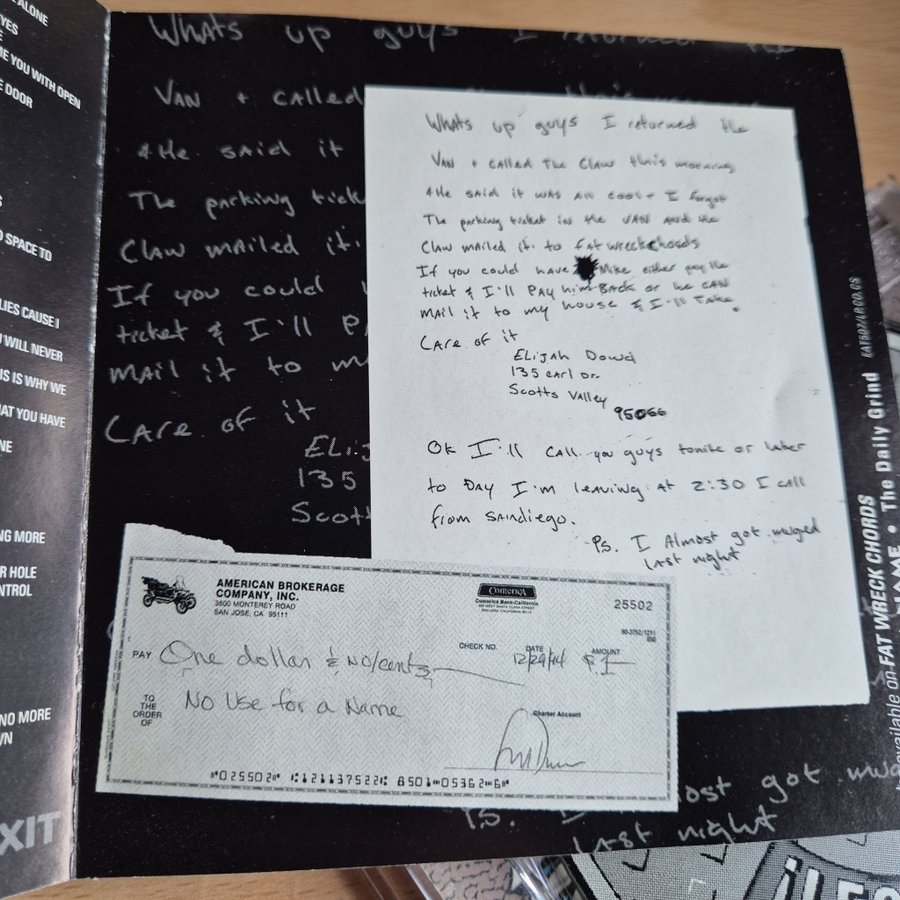 ALONE
YES
ME YOU WITH OPEN
DOOR
SPACE TO
LIES CAUSE I
WILL NEVER
THIS IS WHY WE
WHAT YOU HAVE
NG MORE
HOLE
NTROL
NO MORE
WN
XIT
Whats up guys I returned the
VAN + called
+He said it
The parking tick
Claw mailed it.
If you could
ticket & I'll PA
mail it to m
Care of it
ELij
135
Scott
Ps. I
ost got mug
last night
Whats up guys I returned the
VAN + called The Claw this morning
+He said it was all cool + I forgot
The parking ticket in the VAN and the
Claw mailed it. to fat wreckchords
If you could have Mike either pay the
ticket & I'll PAY him BACK or he CAN
mail it to my house & I'll Take
Care of it
Elijah Dowd
135 earl Dr.
Scotts Valley
95066
Ok I'll CALL you guys tonite or later
to DAY I'm leaving at 2:30 I call
from SAndiego.
Ps. I Almost got muged
last night
AMERICAN BROKERAGE
COMPANY, INC.
3600 MONTEREY ROAD
SAN JOSE, CA 95111
Comerica
Comerica Bank-California
25502
90-3752/1211
CHECK NO.
DATE
AMOUNT
PAY One dollar & No/cents
12/29/94 $1
TO
THE
ORDER
OF
No Use for a Name
Charter Account
⑈025502⑈ ⑆121137522⑆ 8501⑉05362⑉6⑈
available on FAT WRECK CHORDS
NAME • The Daily Grind FAT507/LP.CD.CS